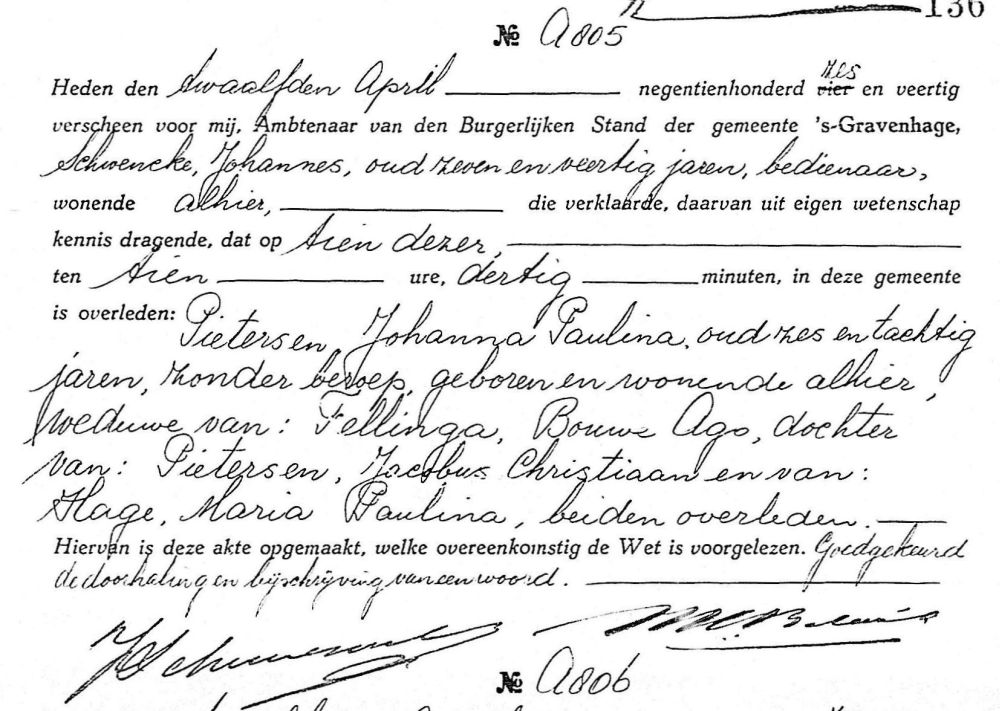 136
№ A805
zes
Heden den twaalfden April negentienhonderd vier en veertig
verscheen voor mij, Ambtenaar van den Burgerlijken Stand der gemeente 's-Gravenhage,
Schwencke, Johannes, oud zeven en veertig jaren, bedienaar,
wonende alhier, die verklaarde, daarvan uit eigen wetenschap
kennis dragende, dat op tien dezer,
ten tien ure, dertig minuten, in deze gemeente
is overleden: Pietersen, Johanna Paulina, oud zes en tachtig
jaren, zonder beroep, geboren en wonende alhier,
weduwe van: Fellinga, Bouwe Ago, dochter
van: Pietersen, Jacobus Christiaan en van:
Hage, Maria Paulina, beiden overleden.
Hiervan is deze akte opgemaakt, welke overeenkomstig de Wet is voorgelezen. Goedgekeurd
de doorhaling en bijschrijving van een woord.
№ A806